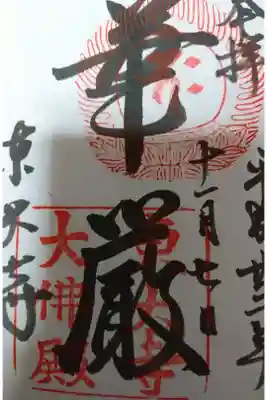 奉拝
平成廿三年
十一月七日
華厳
東大寺
東大寺
大佛殿